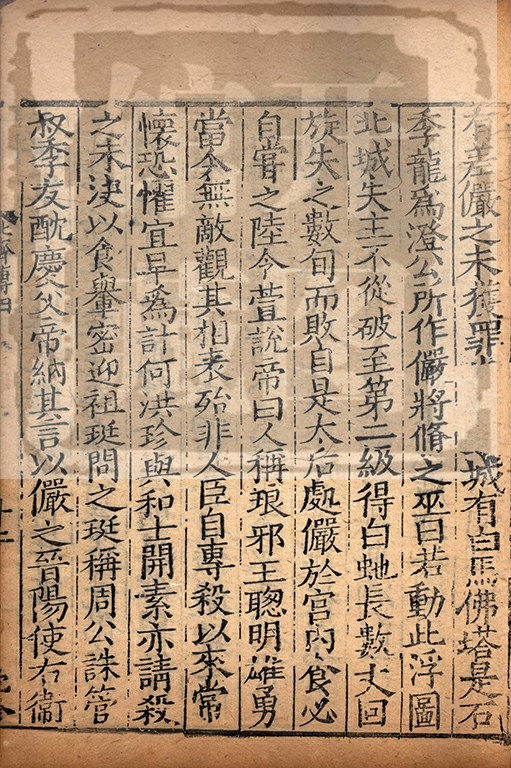 有差儼之未獲罪也 城有白馬佛塔是石
季龍為澄公所作儼將脩之巫曰若動此浮圖
北城失主不從破至第二級得白虵長數丈回
旋失之數旬而敗自是太后處儼於宮內食必
自嘗之陸令萱說帝曰人稱琅邪王聰明雄勇
當今無敵觀其相表殆非人臣自專殺以來常
懷恐懼宜早為計何洪珍與和士開素亦請殺
之未決以食轝密迎祖珽問之珽稱周公誅管
叔季友酖慶父帝納其言以儼之晉陽使右衞